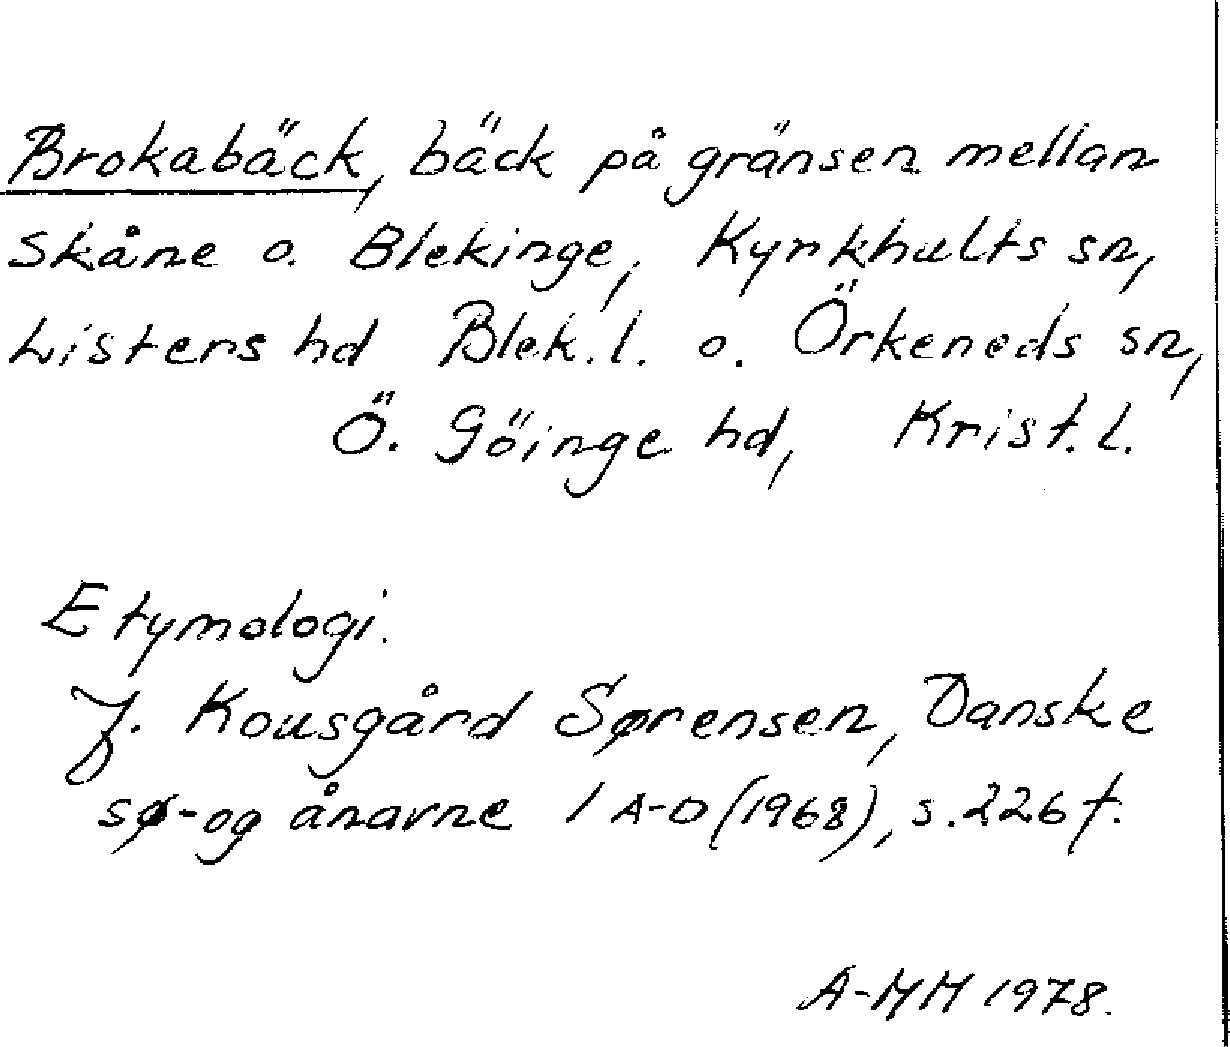 Brokabäck, bäck på gränsen mellan
Skåne o. Blekinge, Kyrkhults sn,
Listers hd Blek. l. o. Örkeneds sn,
Ö. Göinge hd, Krist. l.
Etymologi.
J. Kousgård Sørensen, Danske
sø- og ånavne 1 A-D (1968), s. 226 f.
A-MM 1978.